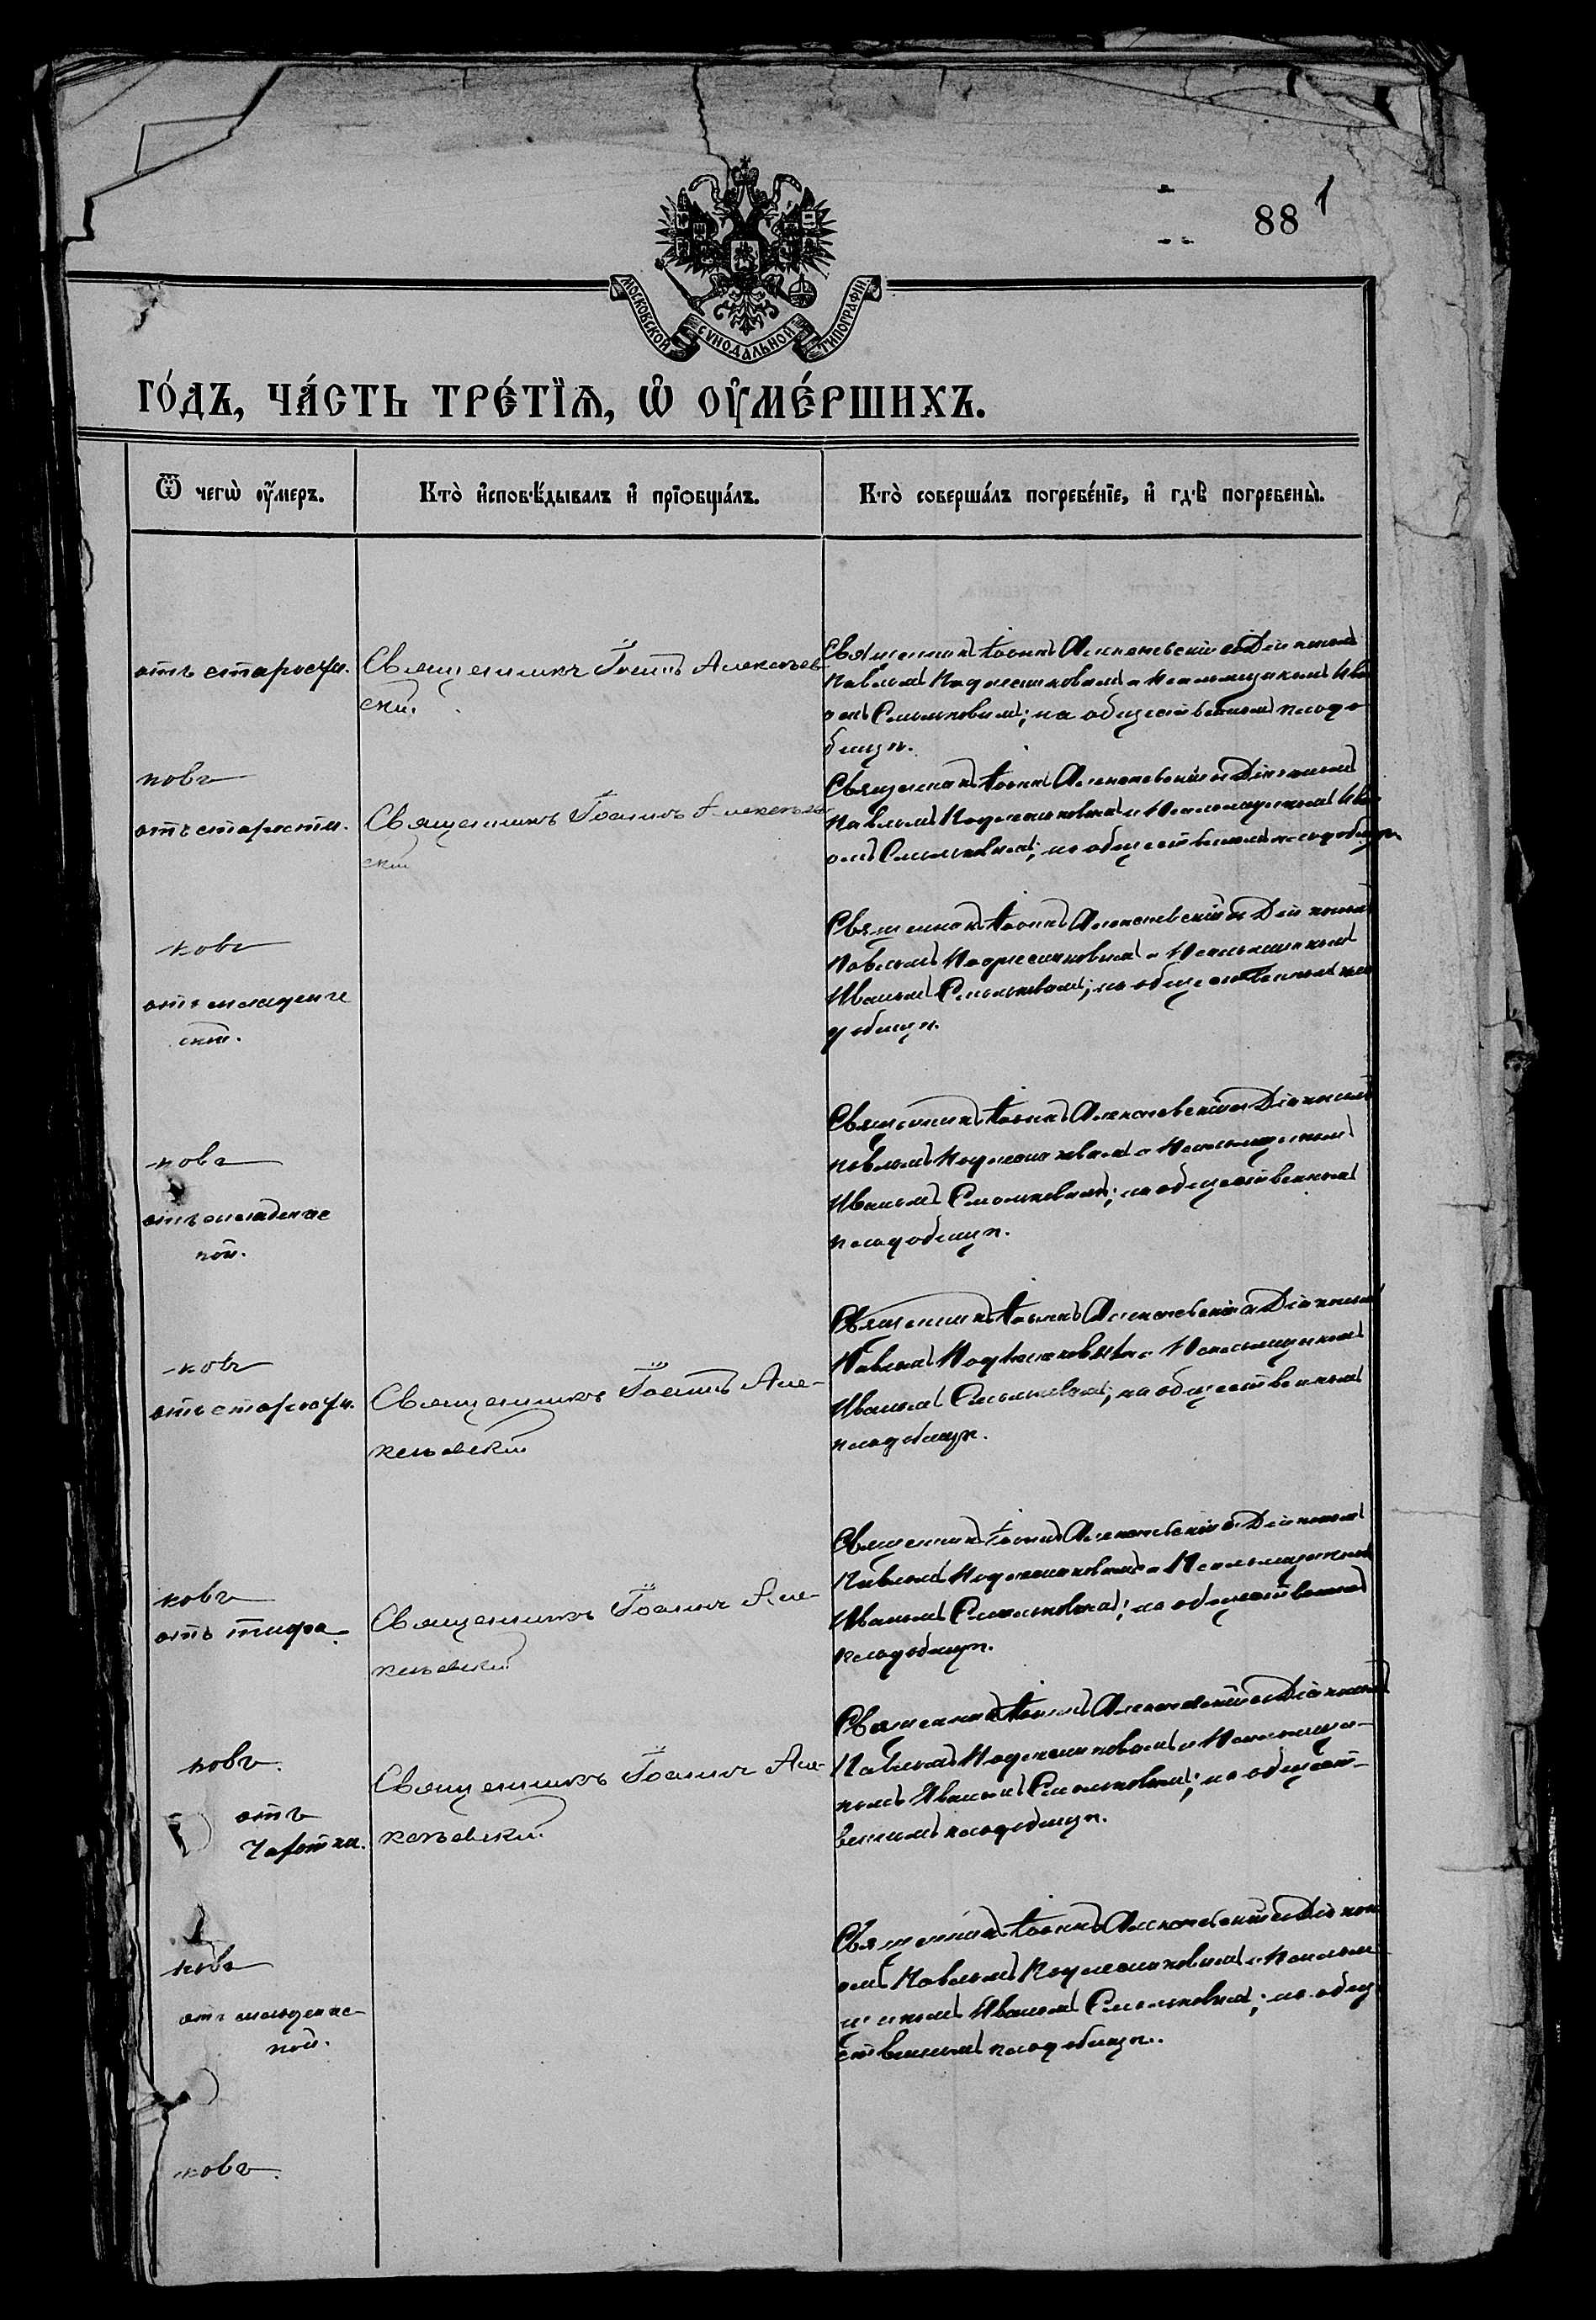 88 1
МОСКОВСКОЙ СУНОДАЛЬНОЙ ТИПОГРАФІИ
ГО́ДЪ, ЧА́СТЬ ТРЕ́ТЇѦ, Ѡ҆ ОУ҆МЕ́РШИХЪ.
Ѿ чегѡ̀ оу҆́меръ.
Кто̀ и҆сповѣ́дывалъ и҆ прїѡбща́лъ.
Кто̀ соверша́лъ погребе́нїе, и҆ гдѣ̀ погребены̀.
отъ старости.
Священникъ Іоаннъ Алексѣев-
скій.
Священникъ Іоаннъ Алексѣевскій съ Діакономъ
Павломъ и Псаломщикомъ Ива
номъ на общественномъ кладо
бищѣ.
ковъ
отъ старости.
Священникъ Іоаннъ Алексѣев
скій
Священникъ Іоаннъ Алексѣевскій съ Діакономъ
Павломъ и Псаломщикомъ Ива
номъ на общественномъ кладобищѣ.
ковъ
отъ младенче
ской.
Священникъ Іоаннъ Алексѣевскій съ Діакономъ
Павломъ и Псаломщикомъ
Иваномъ на общественномъ кла
добищѣ.
ковъ
отъ младенчес
кой.
Священникъ Іоаннъ Алексѣевскій съ Діакономъ
Павломъ и Псаломщикомъ
Иваномъ на общественномъ
кладобищѣ.
ковъ
отъ старости.
Священникъ Іоаннъ Але-
ксѣевскій
Священникъ Іоаннъ Алексѣевскій съ Діакономъ
Павломъ и Псаломщикомъ
Иваномъ на общественномъ
кладобищѣ.
ковъ
отъ тифа.
Священникъ Іоаннъ Але-
ксѣевскій
Священникъ Іоаннъ Алексѣевскій съ Діакономъ
Павломъ и Псаломщикомъ
Иваномъ на общественномъ
кладобищѣ.
ковъ.
отъ
чахотки.
Священникъ Іоаннъ Але-
ксѣевскій.
Священникъ Іоаннъ Алексѣевскій съ Діакономъ
Павломъ и Псаломщи-
комъ Иваномъ на общест-
венномъ кладобищѣ.
ковъ
отъ младенчес-
кой.
Священникъ Іоаннъ Алексѣевскій съ Діакон
омъ Павломъ и Псалом
щикомъ Иваномъ на общ
ственномъ кладобищѣ.
ковъ.